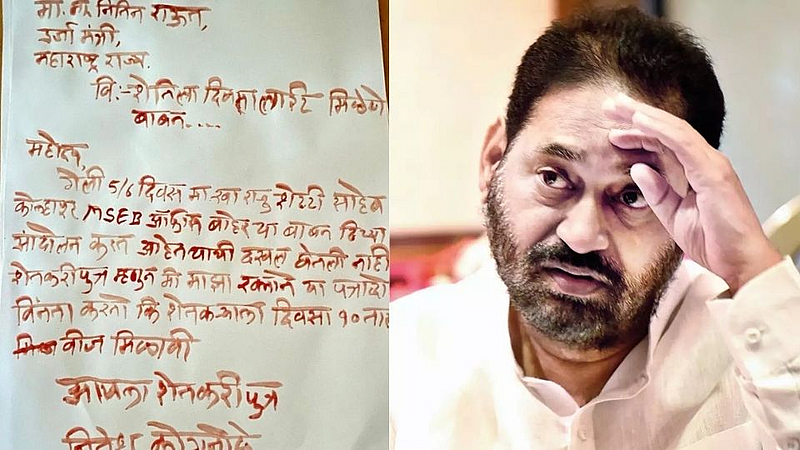 मा. ना. नितिन राऊत,
उर्जा मंत्री,
महाराष्ट्र राज्य.
वि:- शेतीला दिवसा लाईट मिळणे
बाबत....
महोदय,
गेली 5/6 दिवस मा. खा राजू शेट्टी साहेब
कोल्हापूर MSEB ऑफिस बाहेर या बाबत ठिय्या
आंदोलन करत आहेत याची दखल घेतली नाही
शेतकरीपुत्र म्हणून मी माझा रक्ताने या पत्राद्वा
विनंती करतो कि शेतकऱ्याला दिवसा १० तास
वीज मिळावी
आपला शेतकरीपुत्र